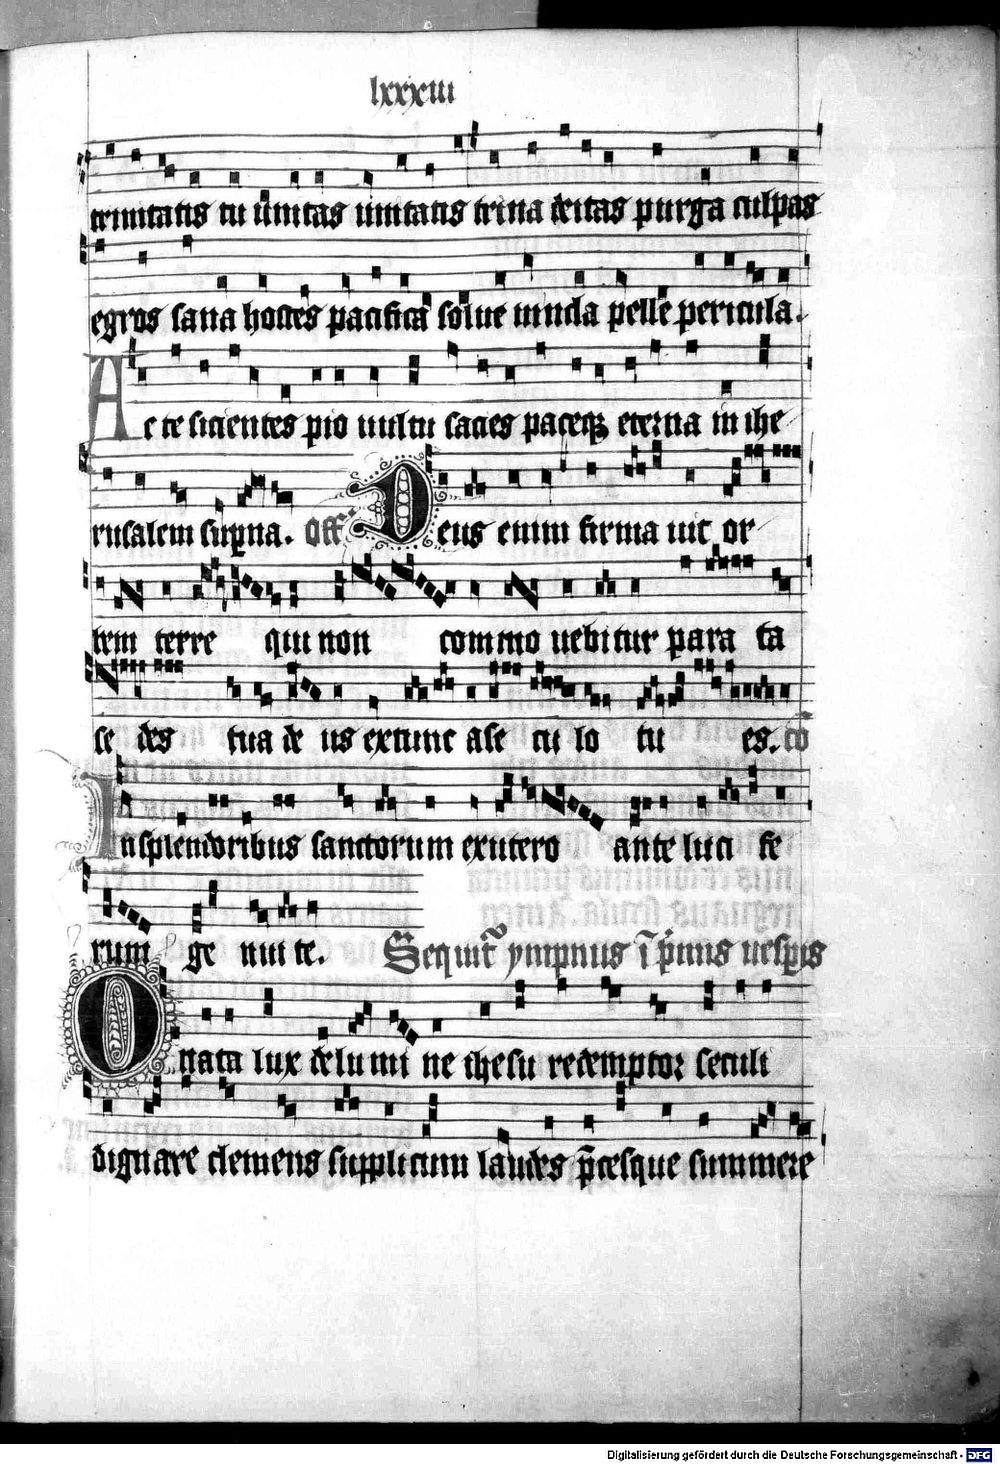 lxxxiii
trinitatis tu unitas unitatis trina deitas purga culpas
egros sana hostes pacifica solue uincla pelle pericula.
Ac te sicientes pio uultu sacies paceqꝫ eterna in ihe
rusalem sup̃na. Off Deus enim firma uit or
tem terre qui non commo uebitur para ta
se des tua de us extunc ase cu lo tu es. cõ
In splendoribus sanctorum exutero ante luci fe
rum ge nui te. Sequit᷑ ympnus ĩ p̃mis uesp̃is
O nata lux de lu mi ne ihesu redemptor seculi
dignare clemens supplicum laudes p̃cesque summere
Digitalisierung gefördert durch die Deutsche Forschungsgemeinschaft - DFG